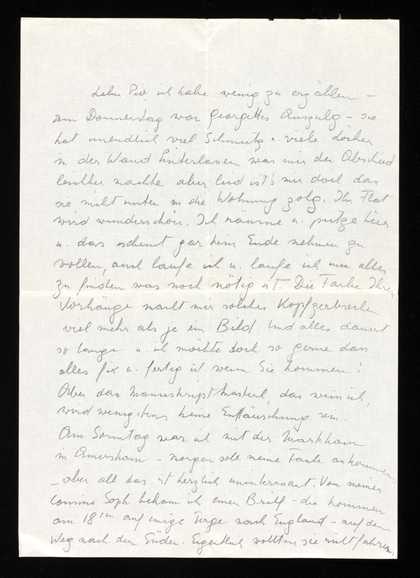 Lieber Pio ich habe wenig zu erzählen –
am Donnerstag war Georgettes Auszug – sie
hat unendlich viel Schmutz u. viele Löcher
in der Wand hinterlassen was mir den Abschied
leichter machte aber leid ist's mir doch dass
sie nicht unten in die Wohnung zog. Ihr Flat
wird wunderschön. Ich räume u. putze hier
u. das scheint gar kein Ende nehmen zu
wollen, auch laufe ich u. laufe ich um alles
zu finden was noch nötig ist. Die Farbe Ihrer
Vorhänge macht mir solches Kopfzerbrechen
viel mehr als je ein Bild und alles dauert
so lange u. ich möchte doch so gerne dass
alles fix u. fertig ist wenn Sie kommen!
Aber das Manuskript, das weiss ich,
wird wenigstens keine Enttäuschung sein.
Am Sonntag war ich mit der Markham
in Amersham – morgen soll meine Tante ankommen
– aber all das ist herzlich uninteressant. Von meiner
Cousine Soph bekam ich einen Brief – die kommen
am 18ten auf einige Tage nach England – auf dem
Weg nach den Eigentlich wollten sie nicht fahren,